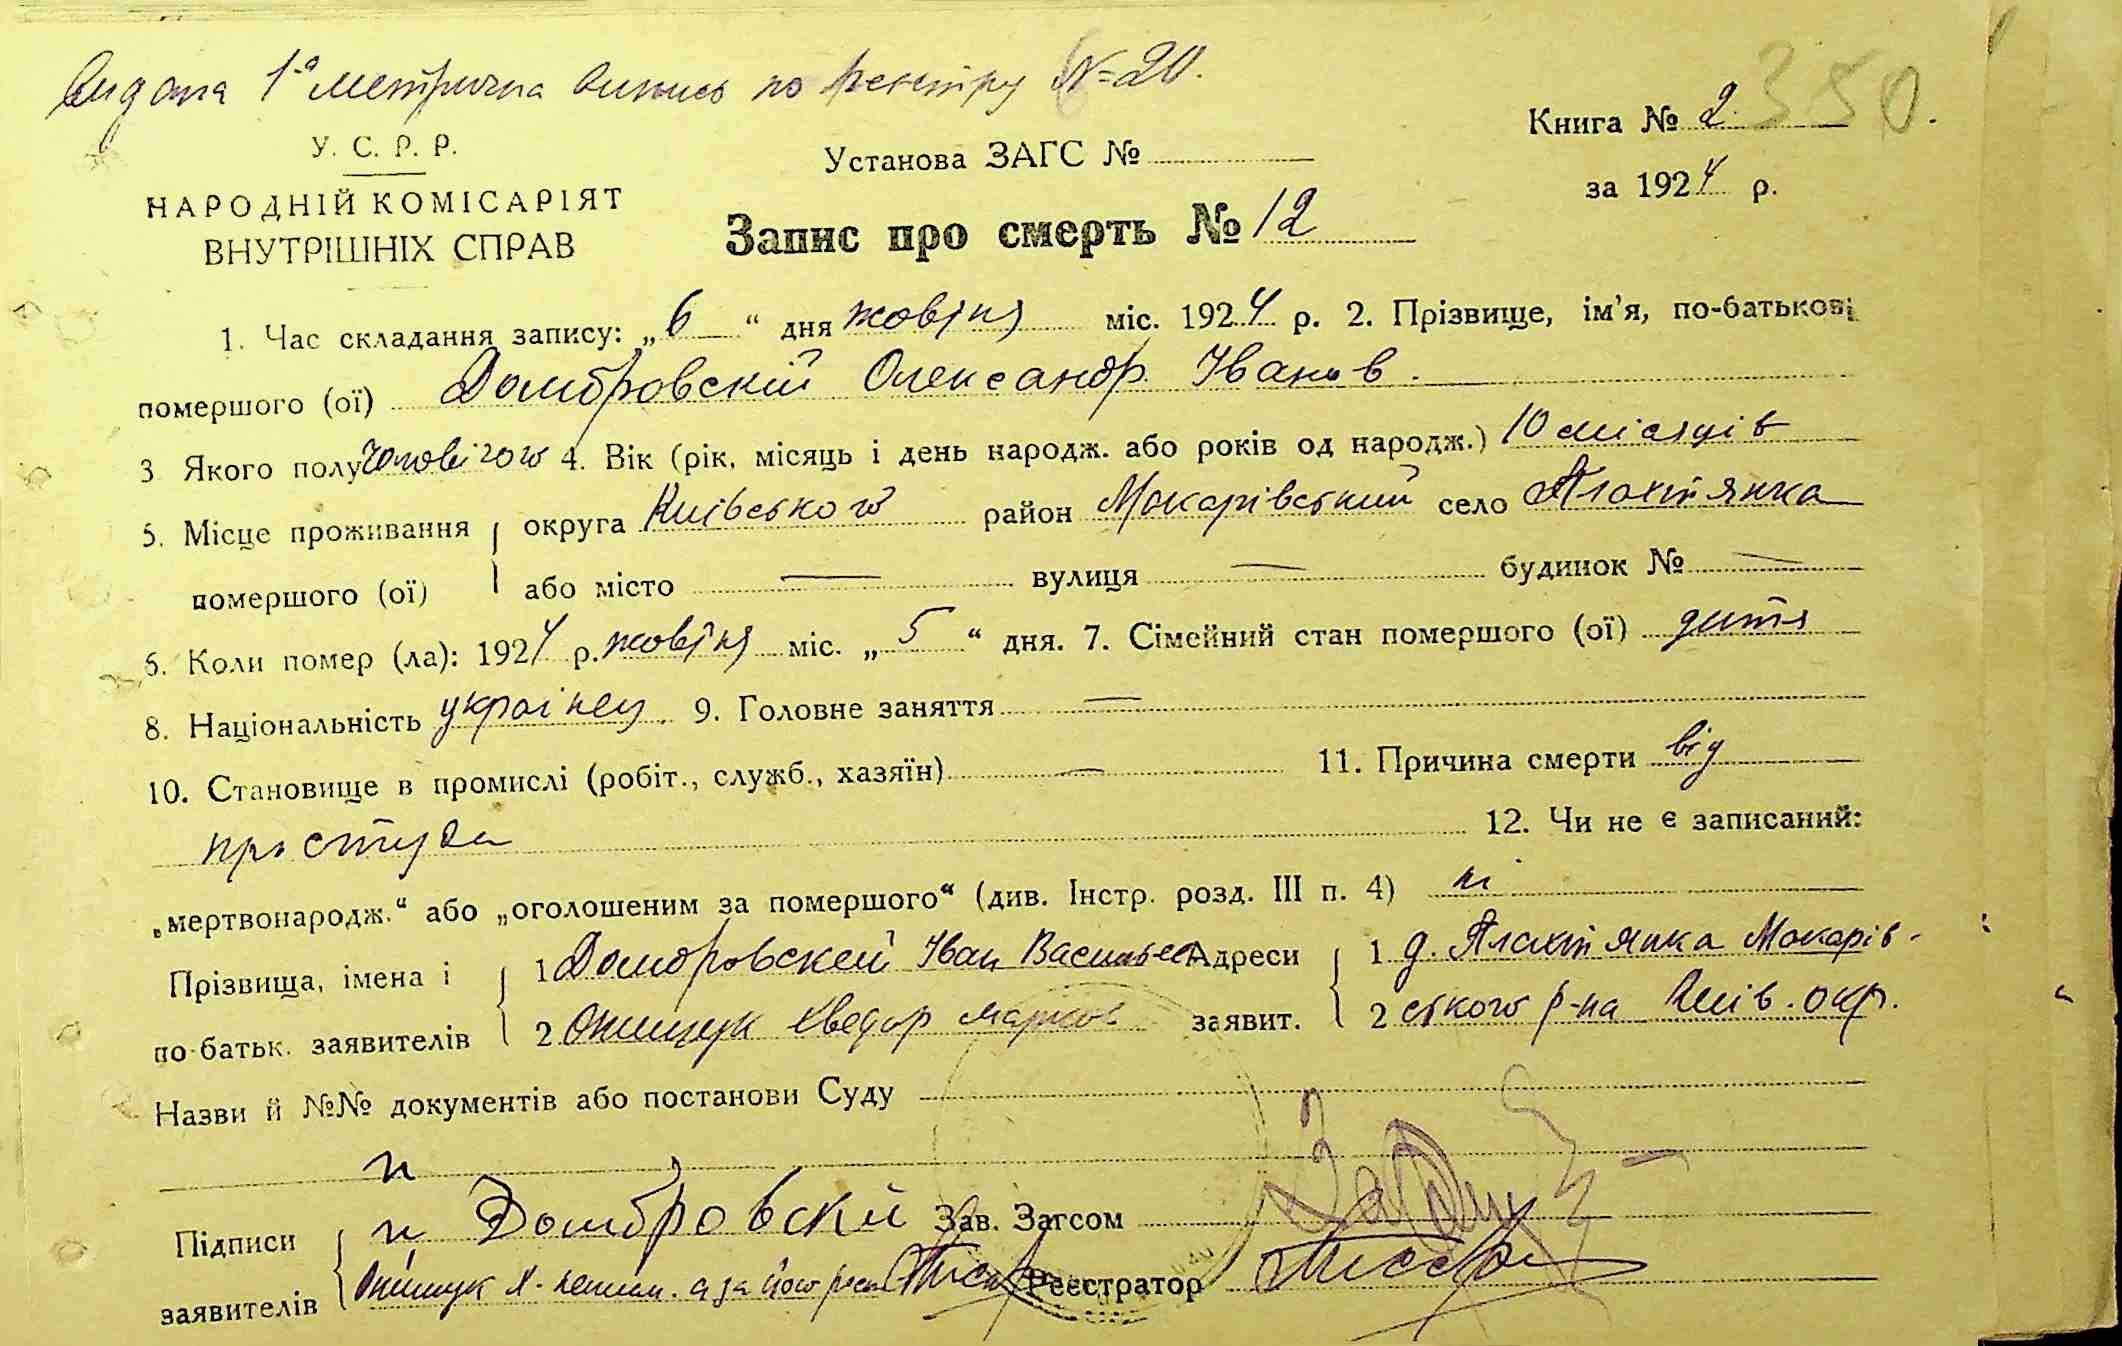 Видана 1-а метрична випись по реєстру №=20.
350.
У. С. Р. Р.
НАРОДНІЙ КОМІСАРІЯТ
ВНУТРІШНІХ СПРАВ
Установа ЗАГС №
Книга № 2
за 1924 р.
Запис про смерть № 12
1. Час складання запису: „6“ дня жовтня міс. 1924 р. 2. Прізвище, ім'я, по-батькові
помершого (ої) Домбровскій Олександр Іванов.
3 Якого полу чоловічого 4. Вік (рік, місяць і день народж. або років од народж.) 10 місяців
5. Місце проживання округа Київського район Макарівський село Плахтянка
помершого (ої) або місто — вулиця — будинок № —
6. Коли помер (ла): 1924 р. жовтня міс. „5“ дня. 7. Сімейний стан помершого (ої) дитя
8. Національність українец. 9. Головне заняття —
10. Становище в промислі (робіт., служб., хазяїн) — 11. Причина смерти від
простуди 12. Чи не є записаний:
„мертвонародж.“ або „оголошеним за помершого“ (див. Інстр. розд. III п. 4) ні
Прізвища, імена і 1 Домбровскей Іван Васильев Адреси 1 д. Плахтянка Макарів-
по-батьк. заявителів 2 Онищук Хведор Марков заявит. 2 ського р-на Київ. окр.
Назви й №№ документів або постанови Суду
Підписи Домбровскій Зав. Загсом
заявителів Онищук Х. непись. а за його Реєстратор